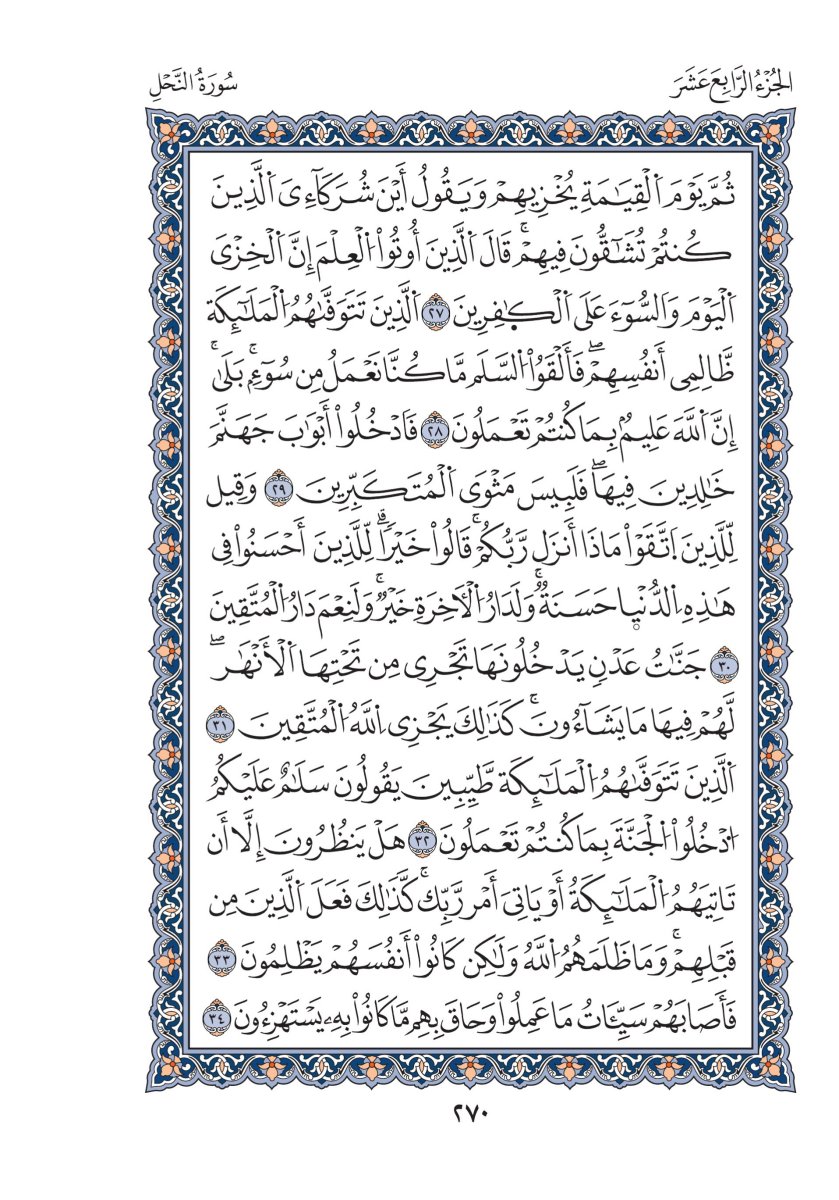 الجُزْءُ الرَّابِعَ عَشَرَ
سُورَةُ النَّحْلِ
ثُمَّ يَوْمَ اَلْقِيَٰمَةِ يُخْزِيهِمْ وَيَقُولُ أَيْنَ شُرَكَآءِىَ اَلَّذِينَ
كُنتُمْ تُشَٰٓقُّونَ فِيهِمْۚ قَالَ اَلَّذِينَ أُوتُواْ اُلْعِلْمَ إِنَّ اَلْخِزْىَ
اَلْيَوْمَ وَالسُّوٓءَ عَلَى اَلْكٰ۪فِرِينَ ٢٧ اَلَّذِينَ تَتَوَفَّىٰهُمُ اُلْمَلَٰٓئِكَة
ظَّالِمِى أَنفُسِهِمْۖ فَأَلْقَوُاْ اُلسَّلَم مَّا كُنَّا نَعْمَلُ مِن سُوٓءِۢۚ بَلَىٰٓۚ
إِنَّ اَللَّهَ عَلِيمُۢ بِمَا كُنتُمْ تَعْمَلُونَ ٢٨ فَادْخُلُواْ أَبْوَٰبَ جَهَنَّمَ
خَٰلِدِينَ فِيهَاۖ فَلَبِيسَ مَثْوَى اَلْمُتَكَبِّرِينَ ٢٩ وَقِيل
لِّلَّذِينَ اَتَّقَوْاْ مَاذَا أَنزَل رَّبُّكُمْۚ قَالُواْ خَيْرٗاۗ لِّلَّذِينَ أَحْسَنُواْ فِى
هَٰذِهِ اِلدُّنْي۪ا حَسَنَةٞۚ وَلَدَارُ اُلْأٓخِرَةِ خَيْرٞۚ وَلَنِعْمَ دَارُ اُلْمُتَّقِينَ
٣٠ جَنَّٰتُ عَدْنٖ يَدْخُلُونَهَا تَجْرِى مِن تَحْتِهَا اَلْأَنْهَٰرۖ
لَّهُمْ فِيهَا مَا يَشَآءُونَۚ كَذَٰلِكَ يَجْزِى اِللَّهُ اُلْمُتَّقِينَ ٣١
اَلَّذِينَ تَتَوَفَّىٰهُمُ اُلْمَلَٰٓئِكَة طَّيِّبِينَ يَقُولُونَ سَلَٰمٌ عَلَيْكُمُ
اُدْخُلُواْ اُلْجَنَّةَ بِمَا كُنتُمْ تَعْمَلُونَ ٣٢ هَلْ يَنظُرُونَ إِلَّا أَن
تَاتِيَهُمُ اُلْمَلَٰٓئِكَةُ أَوْ يَاتِىَ أَمْر رَّبِّكَۚ كَّذَٰلِكَ فَعَلَ اَلَّذِينَ مِن
قَبْلِهِمْۚ وَمَا ظَلَمَهُمُ اُللَّهُ وَلَٰكِن كَانُواْ أَنفُسَهُمْ يَظْلِمُونَ ٣٣
فَأَصَابَهُمْ سَيِّـَٔاتُ مَا عَمِلُواْ وَحَاقَ بِهِم مَّا كَانُواْ بِهِۦ يَسْتَهْزِءُونَ ٣٤
٢٧٠